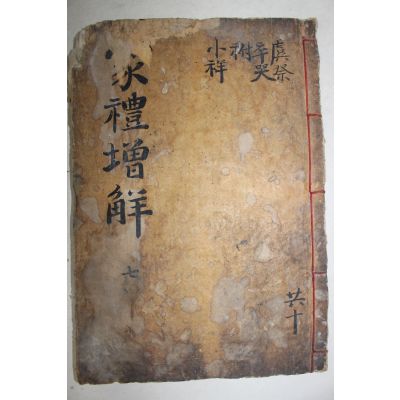 虞祭
卒哭
祔
小祥
家禮增解
七
共十